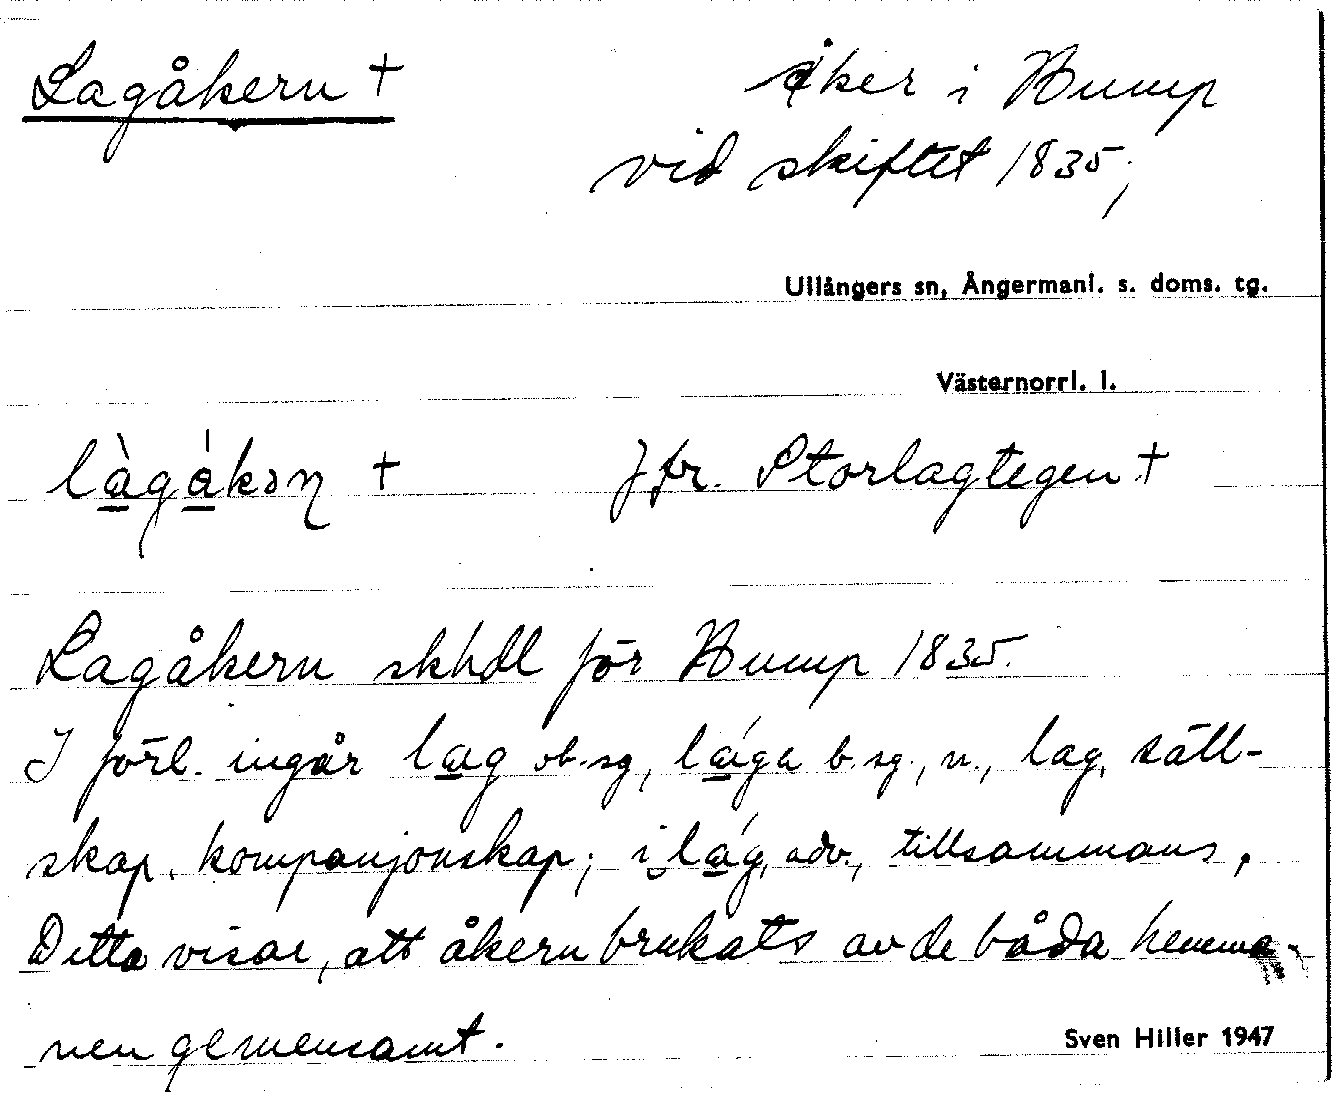 Lagåkern †
åker i Bump
vid skiftet 1835;
Ullångers sn, Ångermanl. s. doms. tg.
Västernorrl. l.
làgákəɳ †
Jfr. Storlagtegen †
Lagåkern skhdl för Bump 1835.
I förl. ingår lag ob. sg, lága b. sg., n., lag, säll-
skap, kompanjonskap; i lág, adv., tillsammans,
Detta visar, att åkern brukats av de båda hemma-
nen gemensamt.
Sven Hiller 1947